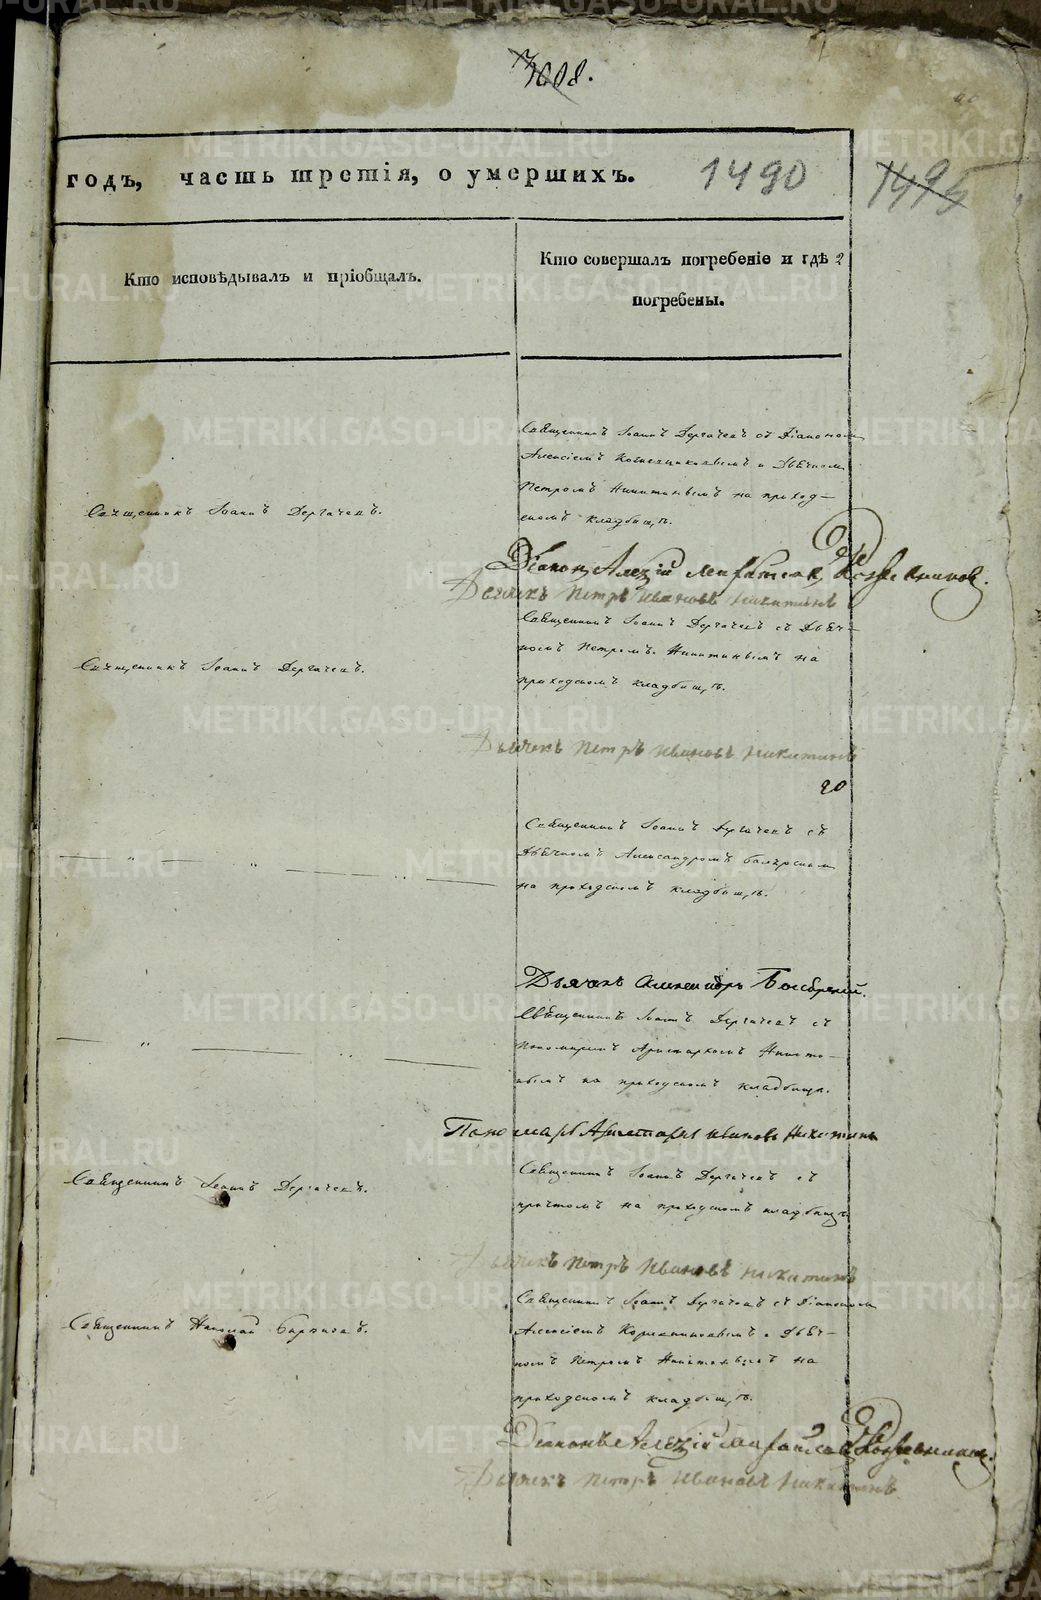 1008.
годъ, часть третія, о умершихъ.
1490
1495
Кто исповѣдывалъ и пріобщалъ.
Кто совершалъ погребеніе и гдѣ
погребены.
Священникъ Іоаннъ Дергачевъ съ Діакономъ
Алексіемъ и Дьячкомъ
Петромъ Никитинымъ на приход-
скомъ кладбищѣ.
Священникъ Іоаннъ Дергачевъ.
Діаконъ Алексій
Дьячекъ Петръ Ивановъ Никитинъ
Священникъ Іоаннъ Дергачевъ съ Дьяч-
комъ Петромъ Никитинымъ на
приходскомъ кладбищѣ.
Священникъ Іоаннъ Дергачевъ.
Дьячекъ Петръ Ивановъ Никитинъ
20
Священникъ Іоаннъ Дергачевъ съ
Дьячкомъ Александромъ
на приходскомъ кладбищѣ.
Дьячекъ Александръ
Священникъ Іоаннъ Дергачевъ съ
Пономаремъ Аристархомъ Никити-
нымъ на приходскомъ кладбищѣ.
Пономарь Аристархъ Ивановъ Никитинъ
Священникъ Іоаннъ Дергачевъ съ
причтомъ на приходскомъ кладбищѣ
Священникъ Іоаннъ Дергачевъ.
Дьячекъ Петръ Ивановъ Никитинъ
Священникъ Іоаннъ Дергачевъ съ Діакономъ
Алексіемъ и Дьяч-
комъ Петромъ Никитинымъ на
приходскомъ кладбищѣ.
Священникъ Николай
Діаконъ Алексій
Дьячекъ Петръ Ивановъ Никитинъ
METRIKI.GASO-URAL.RU